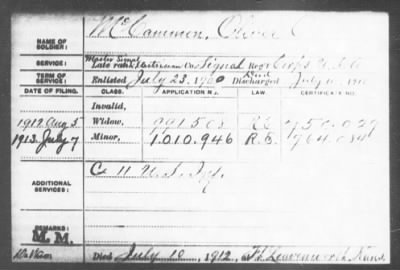 NAME OF SOLDIER:
McCammon, Oliver C
SERVICE:
Master Signal
Late rank, Electrician Co. Signal Reg't Corps U.S.A.
TERM OF SERVICE:
Enlisted July 23, 1900 Died Discharged July 10, 1912
DATE OF FILING. CLASS. APPLICATION NO. LAW. CERTIFICATE NO.
Invalid,
1912 Aug 5 Widow, 991508 R.S. 750.029
1913 July 7 Minor, 1.010.946 R.S. 764.084
ADDITIONAL SERVICES:
C 11 U.S. Inf.
REMARKS:
M. M.
Died July 10, 1912, at Ft Leavenworth, Kans.